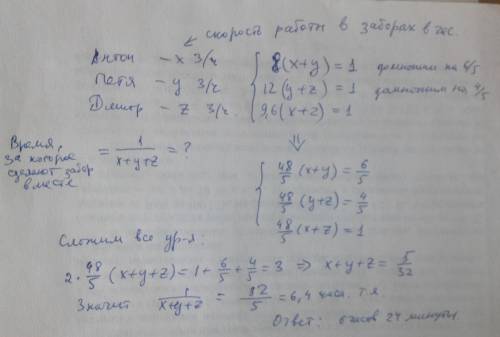 скорость работы в заборах в час.
Антон – x з/ч
Петя – y з/ч
Дмитр – z з/ч.
8(x+y) = 1 домножим на 6/5
12(y+z) = 1 домножим на 4/5
9,6(x+z) = 1
Время,
за которое
сделают забор
вместе
= 1/(x+y+z) = ?
⇓
48/5 (x+y) = 6/5
48/5 (y+z) = 4/5
48/5 (x+z) = 1
Сложим все ур-я:
2 · 48/5 (x+y+z) = 1 + 6/5 + 4/5 = 3 ⇒ x+y+z = 5/32
Значит 1/(x+y+z) = 32/5 = 6,4 часа. т.е.
Ответ: 6 часов 24 минуты.